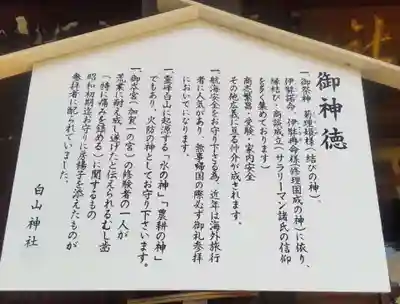 御神徳
一、御祭神 菊理媛様(結びの神)、
伊弉諾命・伊弉冉命様(修理固成の神)に依り、
縁結び・商談成立(サラリーマン諸氏の信仰
を多く集めております)
商売繁昌・受験・家内安全
その他広義に亘る仲介が成されます。
一、航海安全をお守り下さる為、近年は海外旅行
者に人気があり、無事帰国の際必ず御礼参拝
においでになります。
一、霊峰白山に起源する「水の神」「農耕の神」
でもあり、火防の神としてお守り下さいます。
一、御本宮(加賀一の宮)の修験者の一人が
荒業に耐え成し遂げたと伝えられるむし歯
(特に痛みを鎮める)に関するもの
昭和初期迄お守りに房楊子を添えたものが
参拝者に配られていました。
白山神社